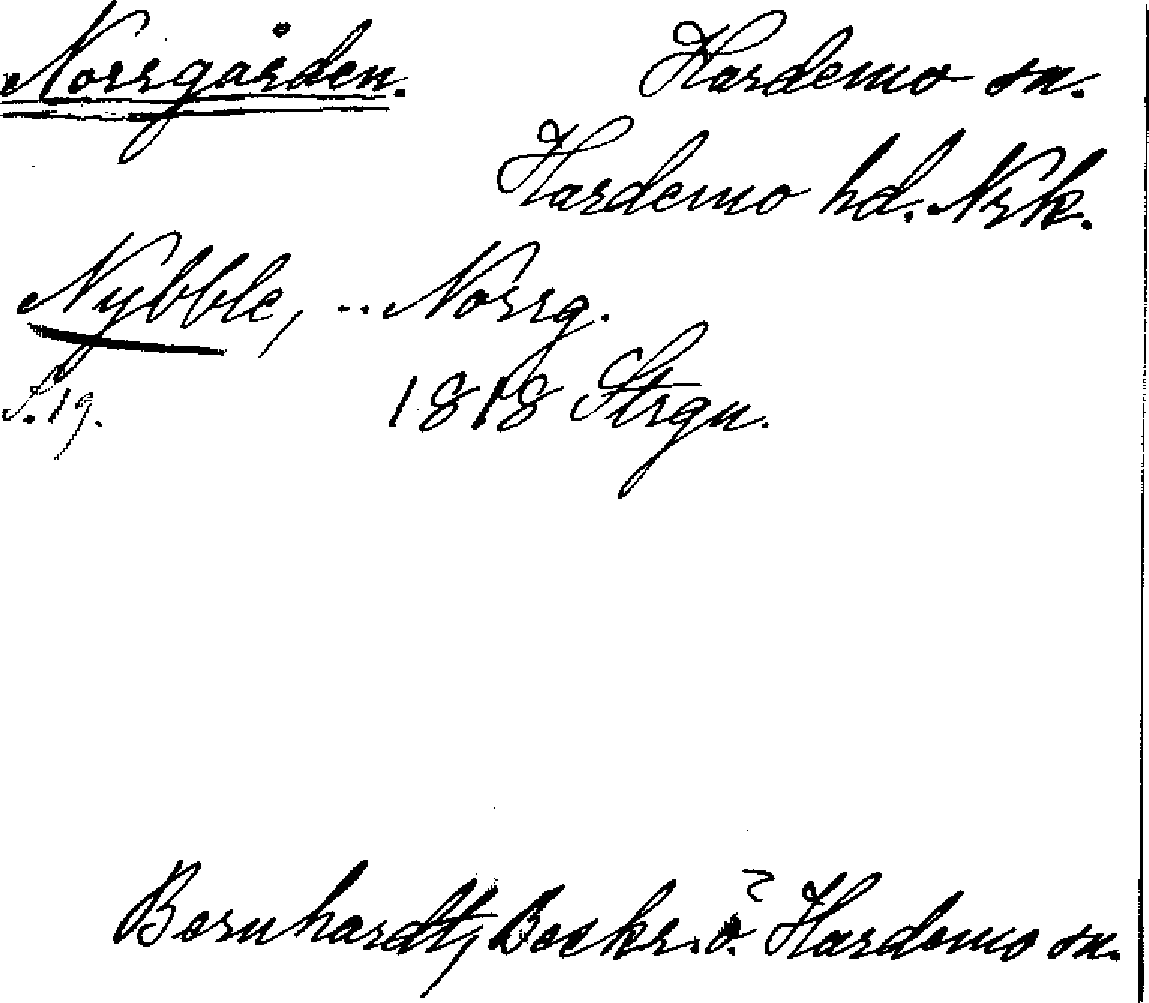 Norrgården. Hardemo sn.
Hardemo hd. Nrk.
Nybble, .. Norrg.
S. 19. 1818 Strgn.
Bernhardt, Beskr. ö. Hardemo sn.